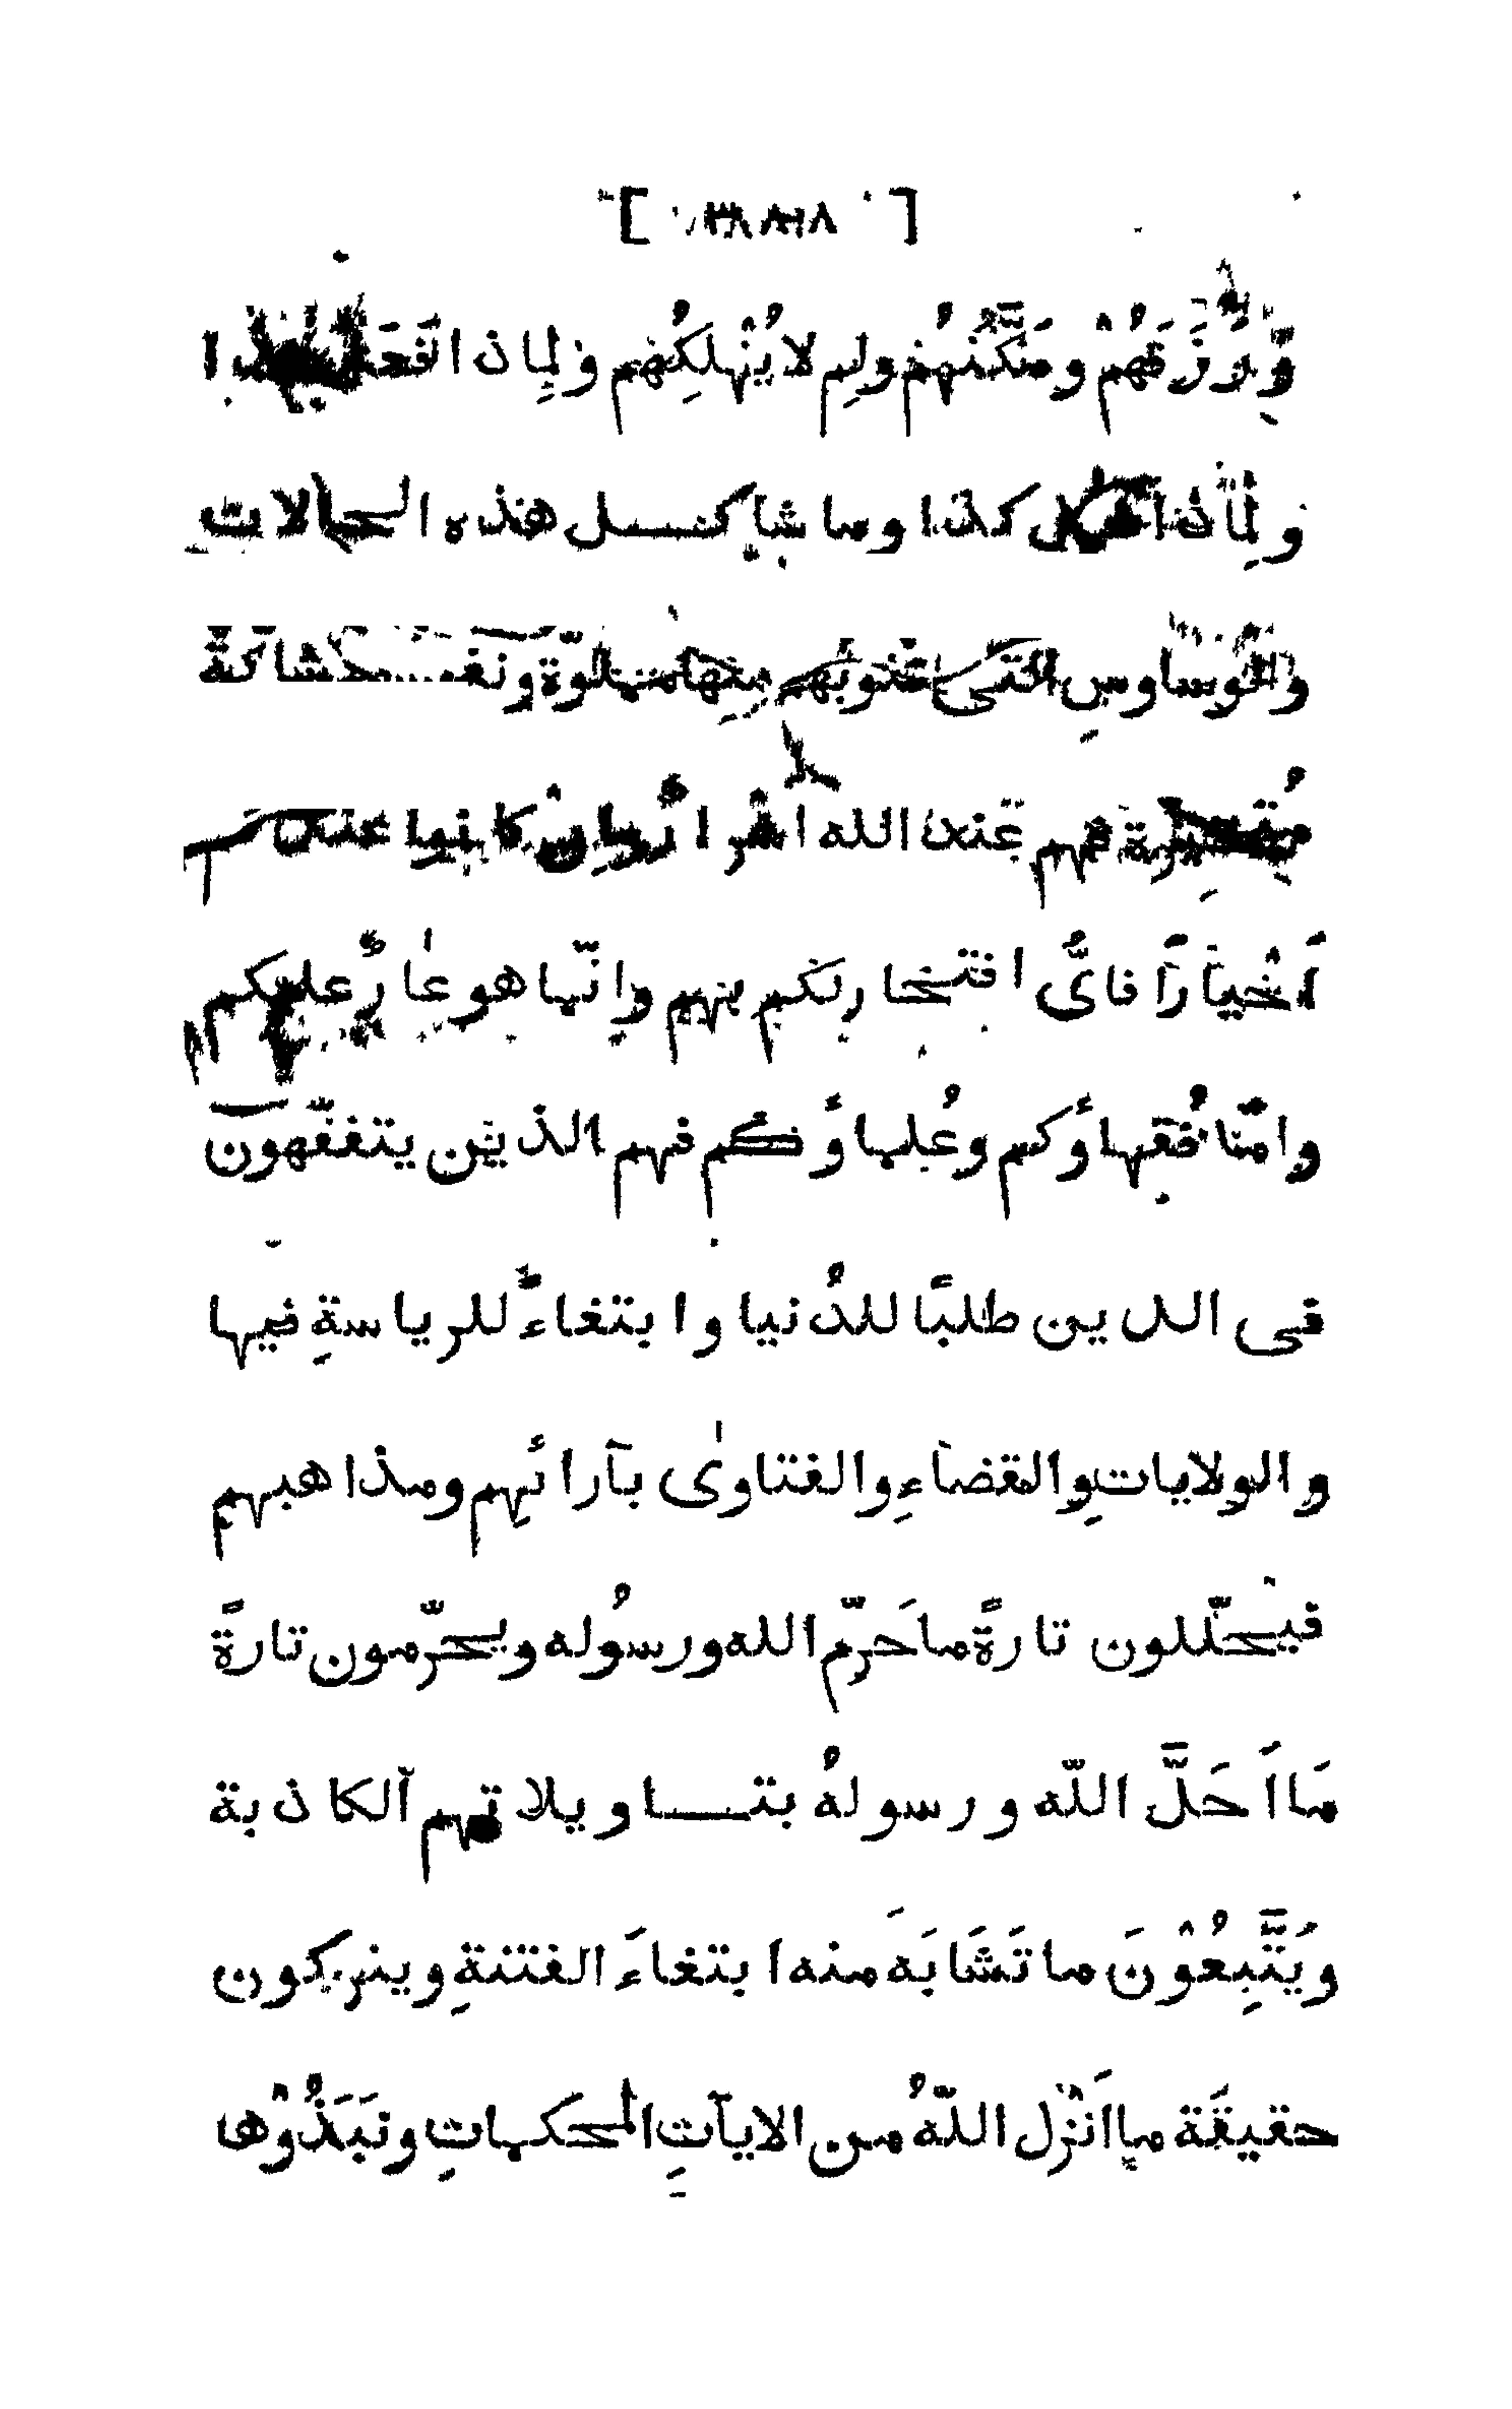 ورزقهم ومَكَّنهُم ولِم لا يُهْلِكُهُم ولِماذا فَعَل هذا
ولِماذا كذا وما شاكل هذه الحالات
والوساوسِ التى قلوبُهم منها مملوّة ونفوسهم
فهم عند الله اشرارٌ وإن كانوا عندكم
اَخْياراً فاىُّ افتخارلكم بهم وانّما هو عارٌ عليكم
وامّا فُقهاؤكم وعُلماؤكم فهم الذين يتفقّهون
فى الدين طلبًا للدُنيا وابتغاءً للرياسةِ فيها
والولاياتِ والقضاءِ والفتاوٰى بآرائهِم ومذاهبهم
فيحلّلون تارةً ماحَرّم الله ورسُوله ويحرّمون تارةً
مَا اَحَلَّ اللّه ورسولهُ بتاويلاتهم الكاذبة
ويَتَّبِعُوْنَ ما تَشَابَهَ منه ابتغاءَ الفتنةِ ويتركون
حقيقَة ما اَنْزل اللّهُ من الايآتِ المحكماتِ ونَبَذُوْها